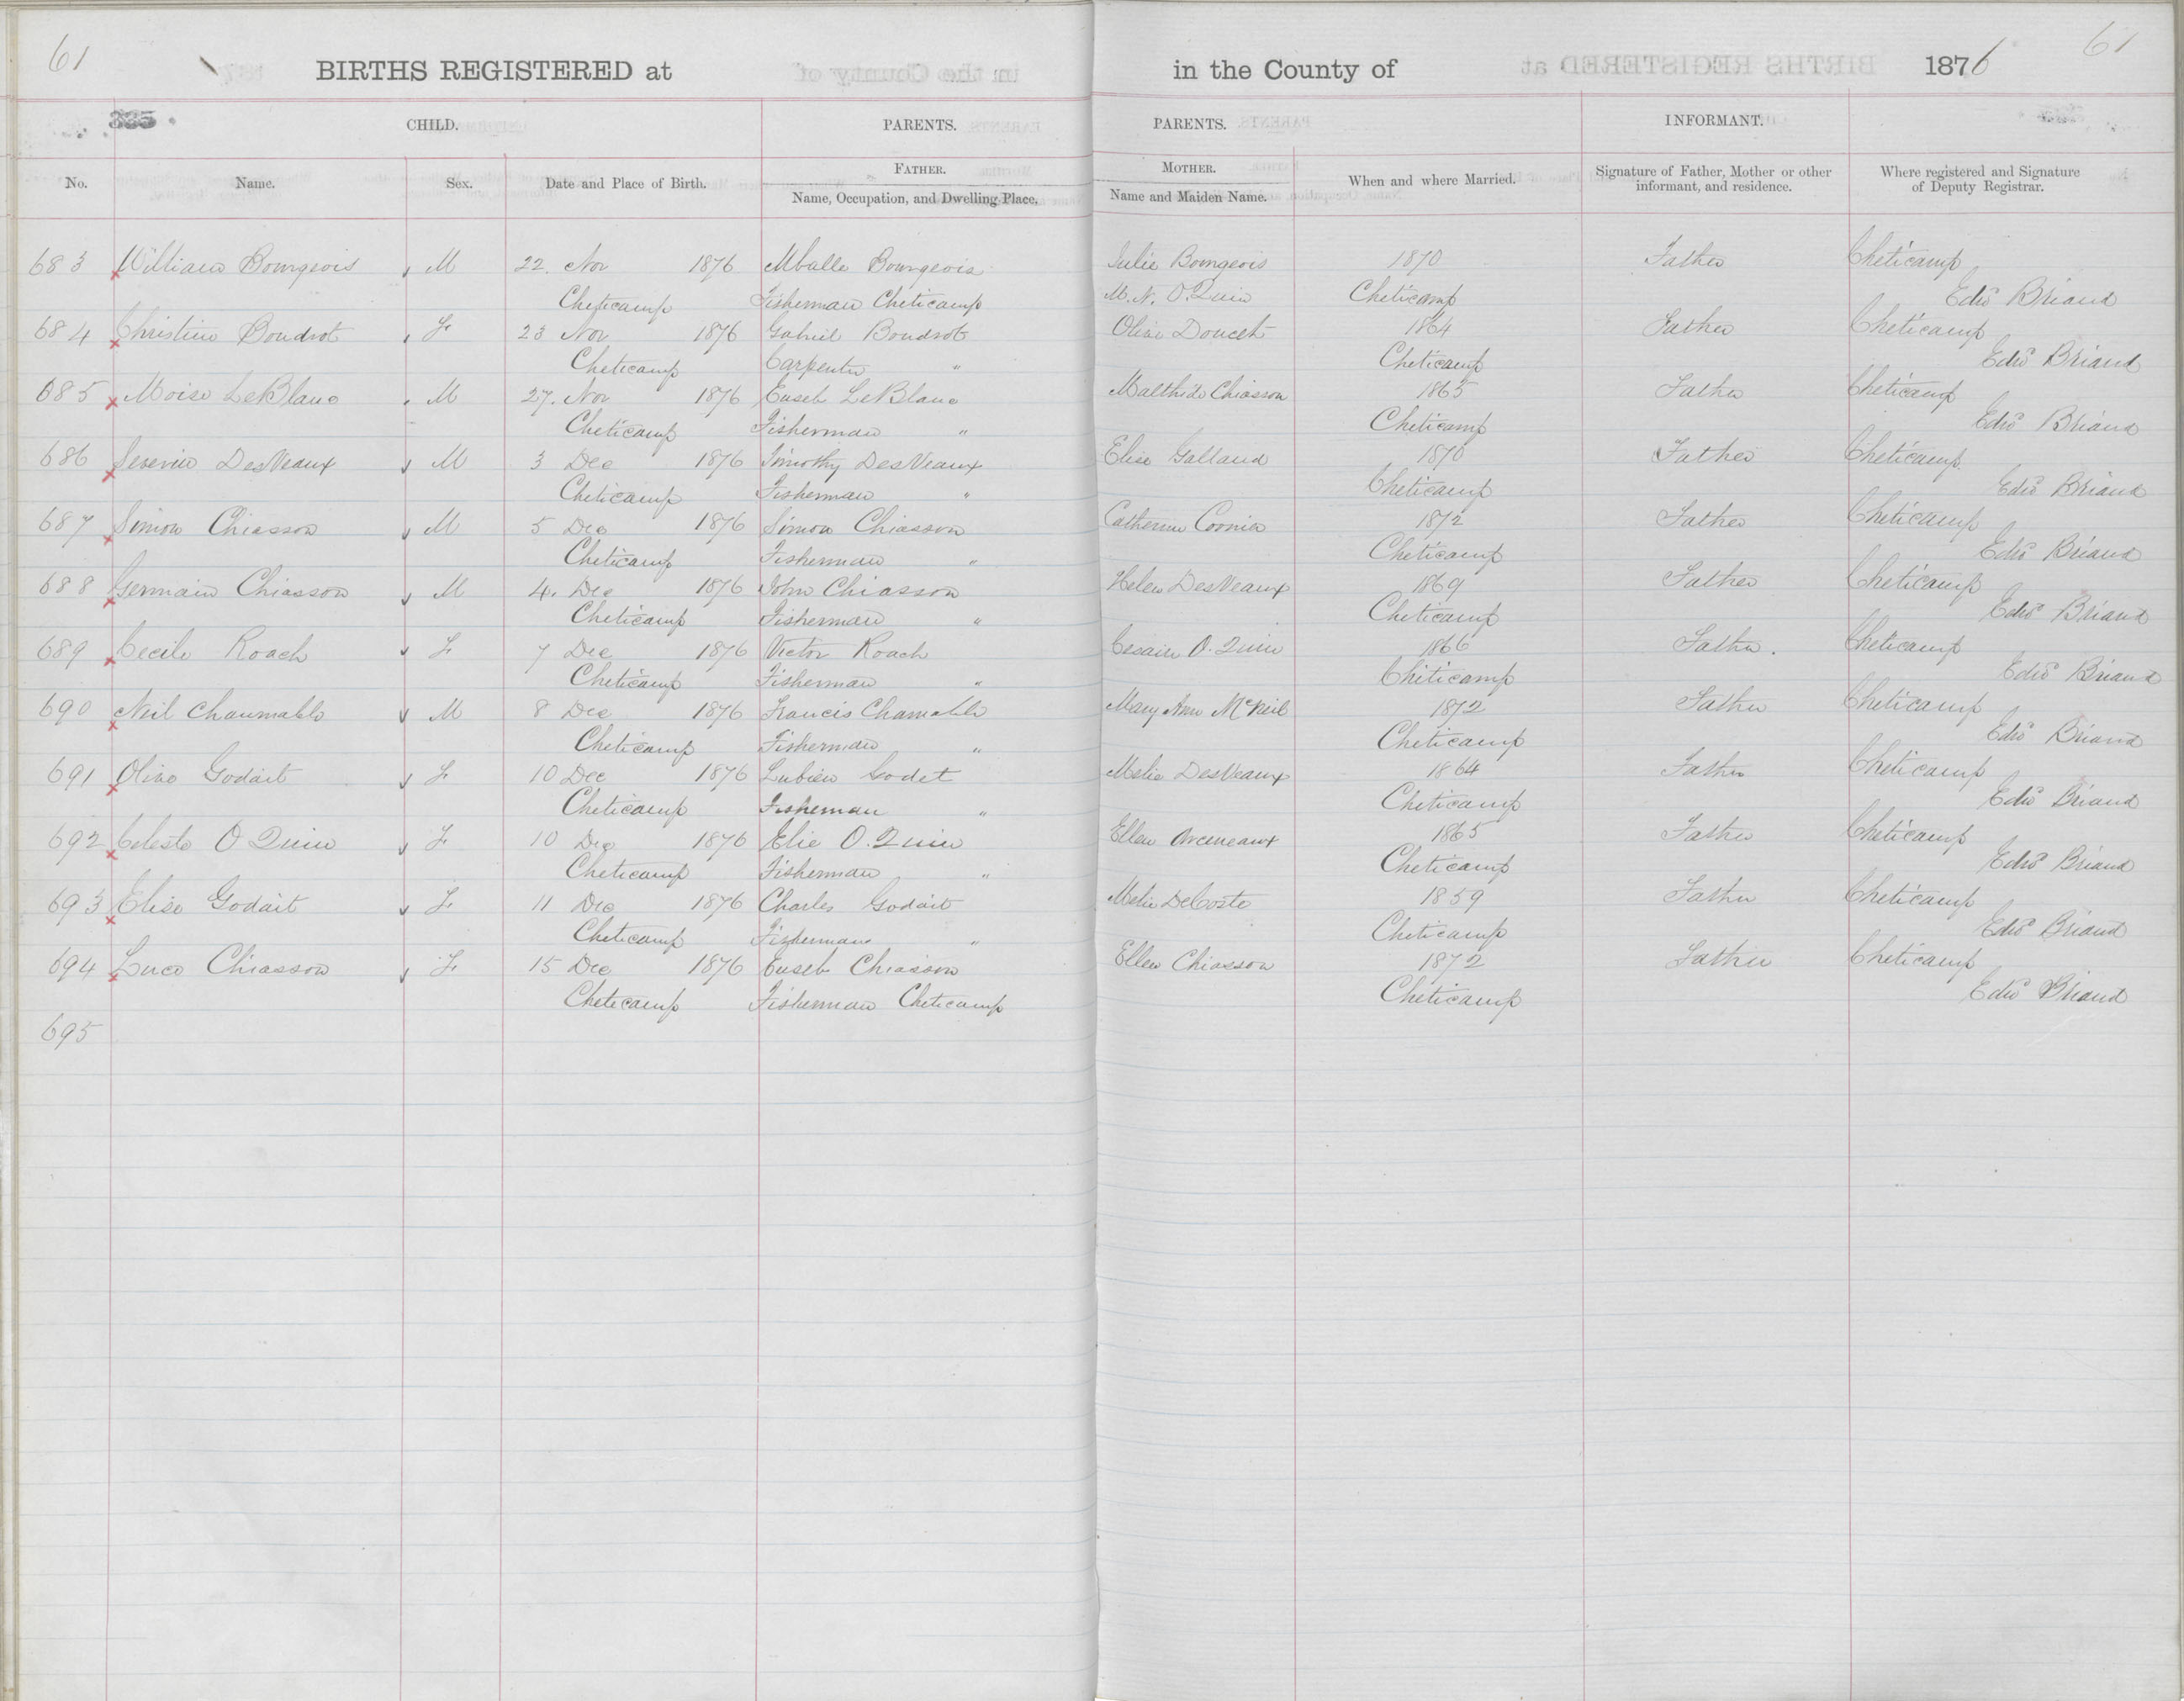 61
BIRTHS REGISTERED at
in the County of
1876
61
335
CHILD.
PARENTS.
PARENTS.
INFORMANT.
No.
Name.
Sex.
Date and Place of Birth.
FATHER.
Name, Occupation, and Dwelling Place.
MOTHER.
Name and Maiden Name.
When and where Married.
Signature of Father, Mother or other
informant, and residence.
Where registered and Signature
of Deputy Registrar.
683 William Bourgeois M 22. Nov 1876 Bourgeois Julie Bourgeois 1870 Father Cheticamp
Cheticamp Fisherman Cheticamp M. N. O. Quin Cheticamp Edwd Briand
684 Christine Boudrot F 23 Nov 1876 Gabriel Boudrot Olive Doucet 1864 Father Cheticamp
Cheticamp Carpenter " Cheticamp Edwd Briand
685 Moise LeBlanc M 27. Nov 1876 Euseb LeBlanc Malthide Chiasson 1865 Father Cheticamp
Cheticamp Fisherman " Cheticamp Edwd Briand
686 Severin DesVeaux M 3 Dec 1876 Timothy DesVeaux Elise Galland 1870 Father Cheticamp
Cheticamp Fisherman " Cheticamp Edwd Briand
687 Simon Chiasson M 5 Dec 1876 Simon Chiasson Catherine 1872 Father Cheticamp
Cheticamp Fisherman " Cheticamp Edwd Briand
688 Germain Chiasson M 4. Dec 1876 John Chiasson Helen DesVeaux 1869 Father Cheticamp
Cheticamp Fisherman " Cheticamp Edwd Briand
689 Cecile Roach F 7 Dec 1876 Victor Roach O. Quin 1866 Father. Cheticamp
Cheticamp Fisherman " Cheticamp Edwd Briand
690 Neil M 8 Dec 1876 Francis Mary Ann McNeil 1872 Father Cheticamp
Cheticamp Fisherman " Cheticamp Edwd Briand
691 Olive Godait F 10 Dec 1876 Lubien Godet Melie DesVeaux 1864 Father Cheticamp
Cheticamp Fisheman " Cheticamp Edwd Briand
692 Celeste O Quin F 10 Dec 1876 Elie O. Quin Ellen Arceneaux 1865 Father Cheticamp
Cheticamp Fisherman " Cheticamp Edwd Briand
693 Elise Godait F 11 Dec 1876 Charles Godait Melie DeCoste 1859 Father Cheticamp
Cheticamp Fisherman " Cheticamp Edwd Briand
694 Luce Chiasson F 15 Dec 1876 Euseb Chiasson Ellen Chiasson 1872 Father Cheticamp
Cheticamp Fisherman Cheticamp Cheticamp Edwd Briand
695